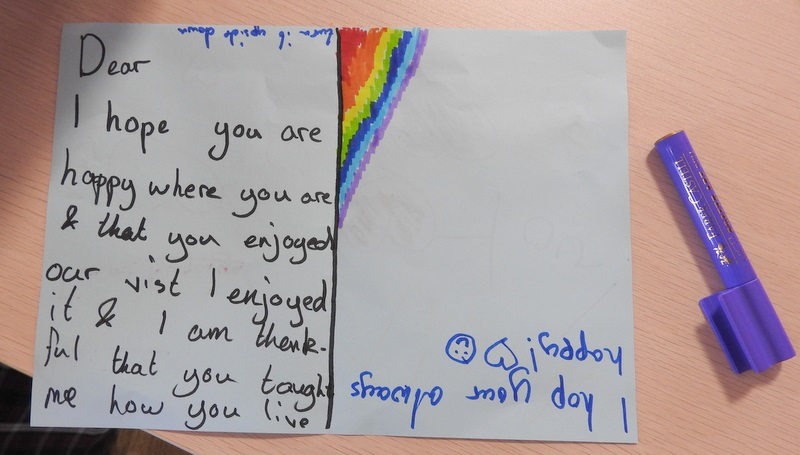 turn it upside down
Dear
I hope you are
happy where you are
& that you enjoyed
our vist I enjoyed
it & I am thank-
ful that you taught
me how you live
I hop your always
happy!
FABER-CASTELL